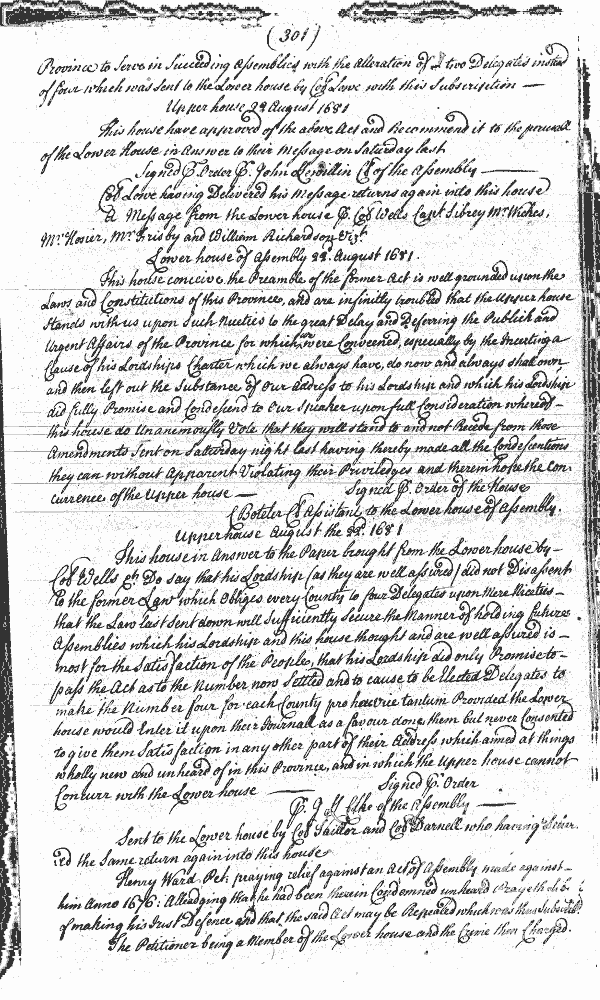 (301)
Province to Serve in Succeeding Assemblies with the alteration of two Delegates instead
of four which was sent to the Lower house by Col Lowe with this Subscription —
Upper house 22 August 1681
This house have approved of the above Act and Recommend it to the perusall
of the Lower House in Answer to their Message on Saturday last
Signed P. Order P. John Clk of the Assembly
Col Lowe having Delivered his Message returns again into this house
A Message from the Lower house P. Col Wells Capt Librey Mr Wickes,
Mr Hosier, Mr Frisby and William Richardson Vizt
Lower house of Assembly 22. August 1681.
This house conceive the Preamble of the former Act is well grounded upon the
Laws and Constitutions of this Province, and are infinitly troubled that the Upper house
Stands with us upon Such Niceties to the great Delay and Deferring the Publick and
Urgent Affairs of the Province for which we were Conveened, especially by the Inserting a
Clause of his Lordships Charter which we always have, do now and always shall own
and then left out the Substance of Our Address to his Lordship and which his Lordship
did fully Promise and Condesend to Our Speaker upon full Consideration whereof —
this house do Unanimously Vote that they will stand to and not Recede from those
Amendments Sent on Saturday night last having thereby made all the Condescentions
they can without Apparent Violating their Priviledges and therein hope the Con-
currence of the Upper house — Signed P. Order of the House
C Boteler Cl Assistant to the Lower house of Assembly.
Upper house August the 22d. 1681
This house in Answer to the Paper brought from the Lower house by —
Col Wells &c Do say that his Lordship (as they are well assured) did not Disassent
to the former Law which Obliges every County to four Delegates upon Mere Niceties —
that the Law last Sent down will Sufficiently Secure the Manner of holding future
Assemblies which his Lordship and this house thought and are well assured is —
most for the Satisfaction of the People, that his Lordship did only Promise to —
pass the Act as to the Number now Settled and to cause to be Elected Delegates to
make the Number four for each County pro hac vice tantum Provided the Lower
house would Enter it upon their Journall as a favour done them but never Consented
to give them Satisfaction in any other part of their Address which aimed at things
wholly new and unheard of in this Province, and in which the Upper house cannot
Concurr with the Lower house — Signed P. Order
P. of the Assembly —
Sent to the Lower house by Col Tailler and Col Darnell who having Deliver-
ed the Same return again into this house
Henry Ward Pet. praying relief against an Act of Assembly made against —
him Anno 1676: Alledging that he had been therein Condemned unheard Prayeth
of making his Just Defence and that the said Act may be Repealed which was thus Subscribed.
The Petitioner being a Member of the Lower house and the Crime then Charged.